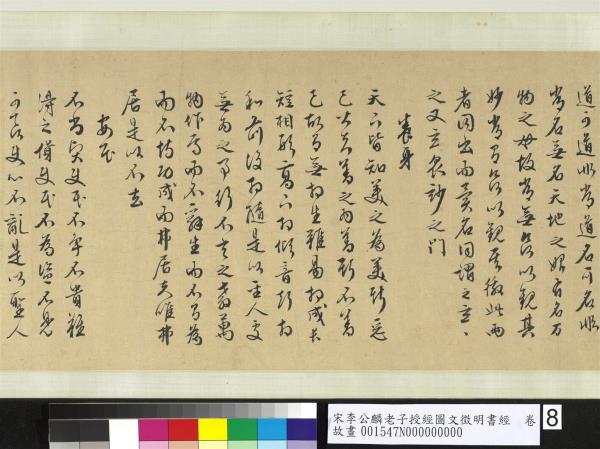 道可道非常道名可名非
常名無名天地之始有名万
物之母故常無欲以觀其
妙常有欲以觀其徼此兩
者同出而異名同謂之玄〻
之又玄衆妙之門
養身
天下皆知美之為美斯惡
已皆知善之為善斯不善
已故有無相生難易相成長
短相形高下相傾音聲相
和前後相隨是以聖人處
無為之事行不言之教萬
物作焉而不辭生而不有為
而不恃功成而弗居夫唯弗
居是以不去
安民
不尚賢使民不爭不貴難
得之貨使民不為盜不見
可欲使心不亂是以聖人
宋李公麟老子授經圖文徵明書經 卷
故畫001547N000000000
8